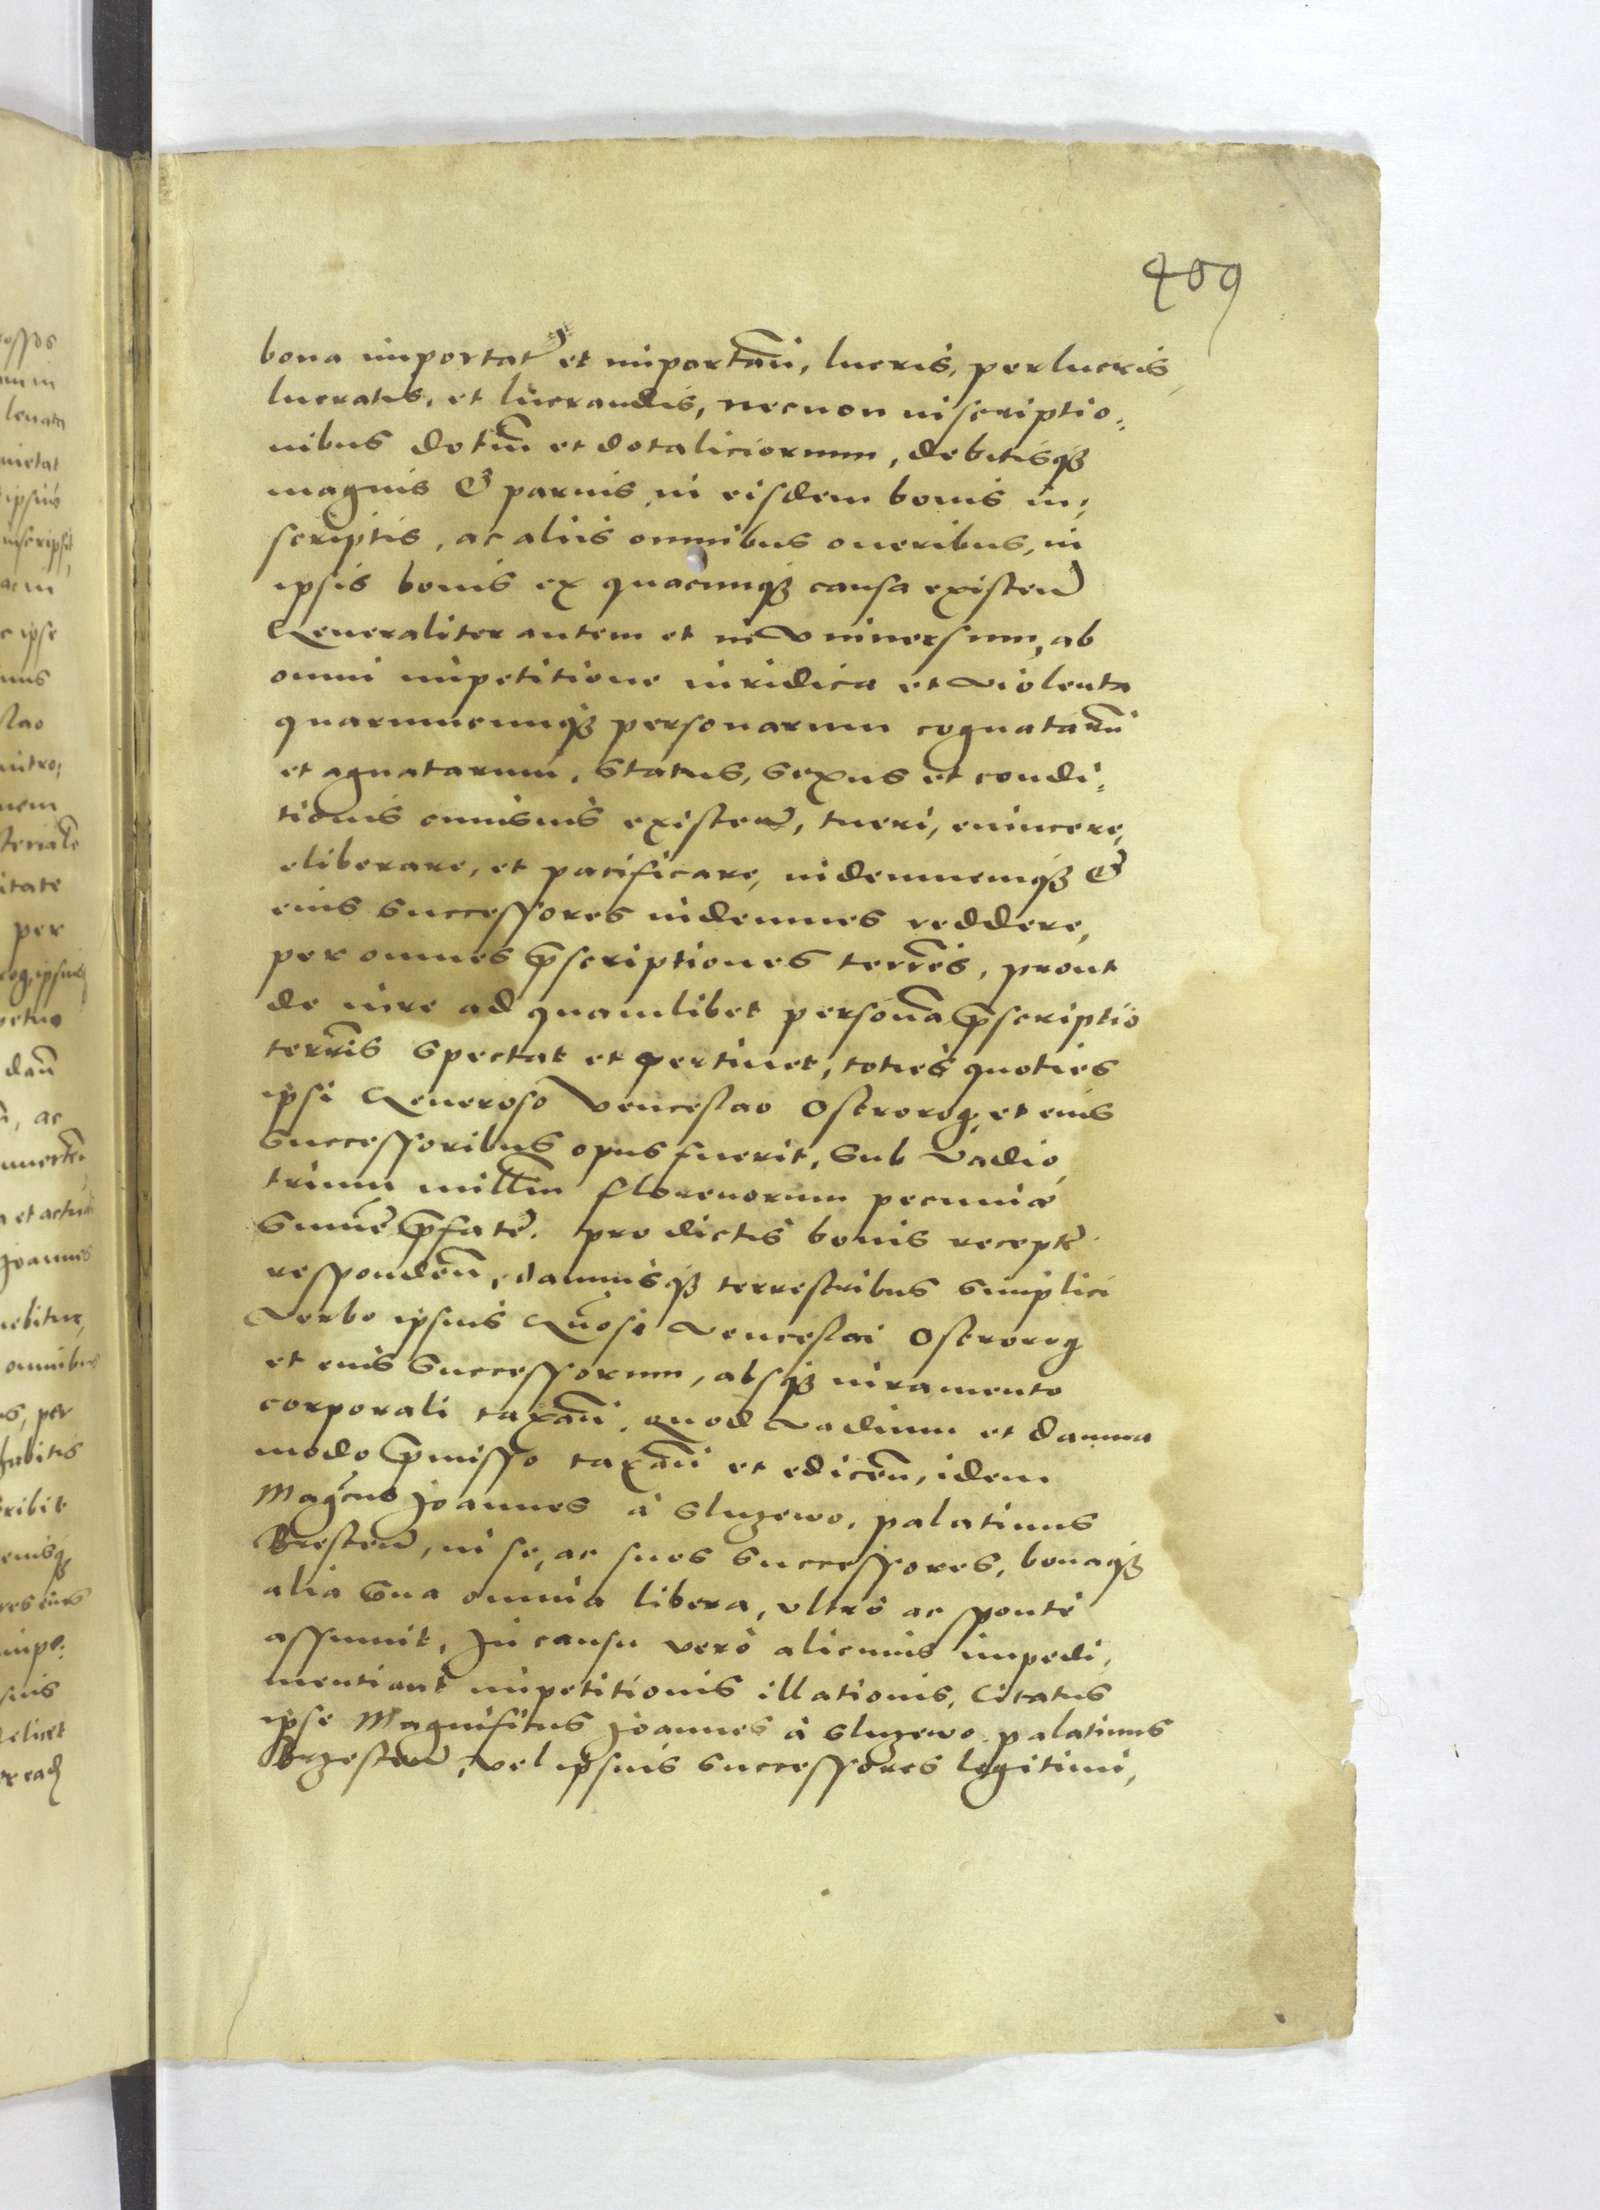 409
bona importat et importan, lucris, perlucris,
lucratis, et lucrandis, necnon inscriptio:
nibus dotiu et dotaliciorum, debitisq3
magnis & paruis, in eisdem bonis in:
scriptis, ac aliis omnibus oneribus, in
ipsis bonis ex quacunq3 causa existen
Generaliter autem et in Vniuersum, ab
omni impetitione iuridica et violenta
quarumcunq3 personarum cognataru
et agnatarum, status, sexus et condi:
tionis omnis existen, tueri, euincere,
eliberare, et pacificare, indemnemq3 &
eius successores indemnes reddere,
per omnes pscriptiones terres, prout
de iure ad quamlibet persona pscriptio
terris spectat et pertinet, toties quoties
ipsi Generoso Venceslao Ostrorog, et eius
successoribus opus fuerit, sub vadio
trium millm florenorum pecuniæ
summe pfate. pro dictis bonis recepte
responden, damnisq3 terrestribus simplici
verbo ipsius Gnosi Venceslai Ostrorog
et eius successorum, absq3 iuramento
corporali taxan. quod vadium et damna
modo pmisso taxan et edicen, idem
Magcus Joannes à Sluzewo, palatinus
Bresten, in se, ac suos successores, bonaq3
alia sua omnia libera, vltrò ac sponte
assumit, In causu verò alicuius impedi,
menti aut impetitionis illationis, Citatus
ipse Magnificus Joannes à Sluzewo palatinus
Brzesten, vel ipsius successores legitimi,